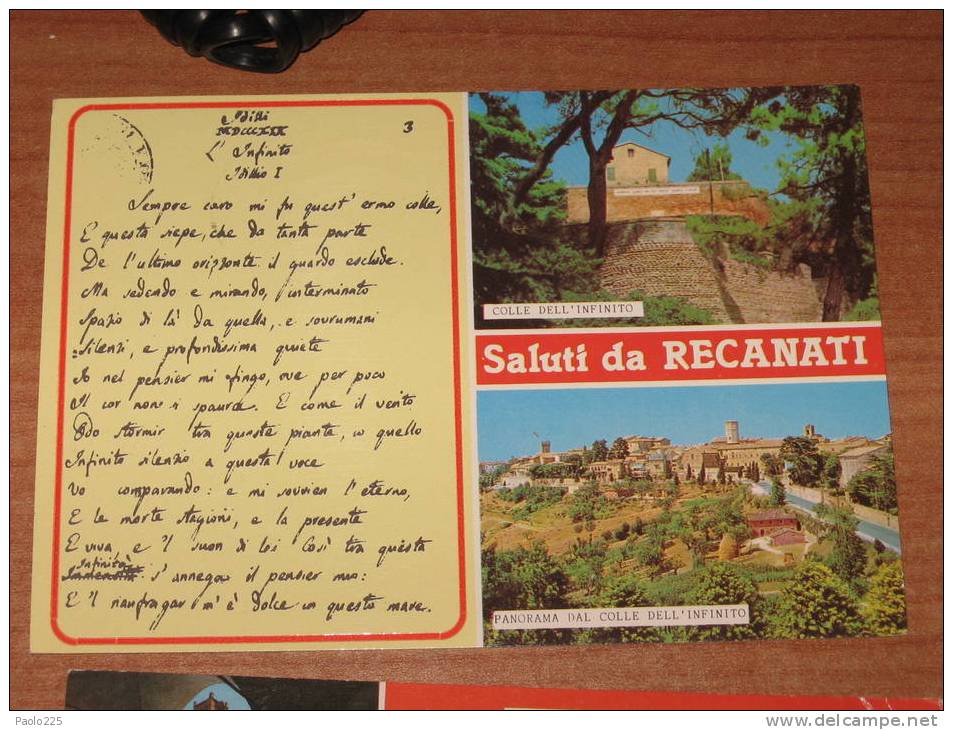 Idilli
MDCCCXIX
3
L' Infinito
Idillio I
Sempre caro mi fu quest' ermo colle,
E questa siepe, che da tanta parte
De l'ultimo orizzonte il guardo esclude.
Ma sedendo e mirando, interminato
Spazio di là da quella, e sovrumani
Silenzi, e profondissima quiete
Io nel pensier mi fingo, ove per poco
Il cor non si spaura. E come il vento
Odo stormir tra queste piante, io quello
Infinito silenzio a questa voce
Vo comparando: e mi sovvien l'eterno,
E le morte stagioni, e la presente
E viva, e 'l suon di lei. Così tra questa
Infinità
Immensità s'annega il pensier mio:
E 'l naufragar m'è dolce in questo mare.
COLLE DELL'INFINITO
Saluti da RECANATI
PANORAMA DAL COLLE DELL'INFINITO
Paolo225
www.delcampe.net